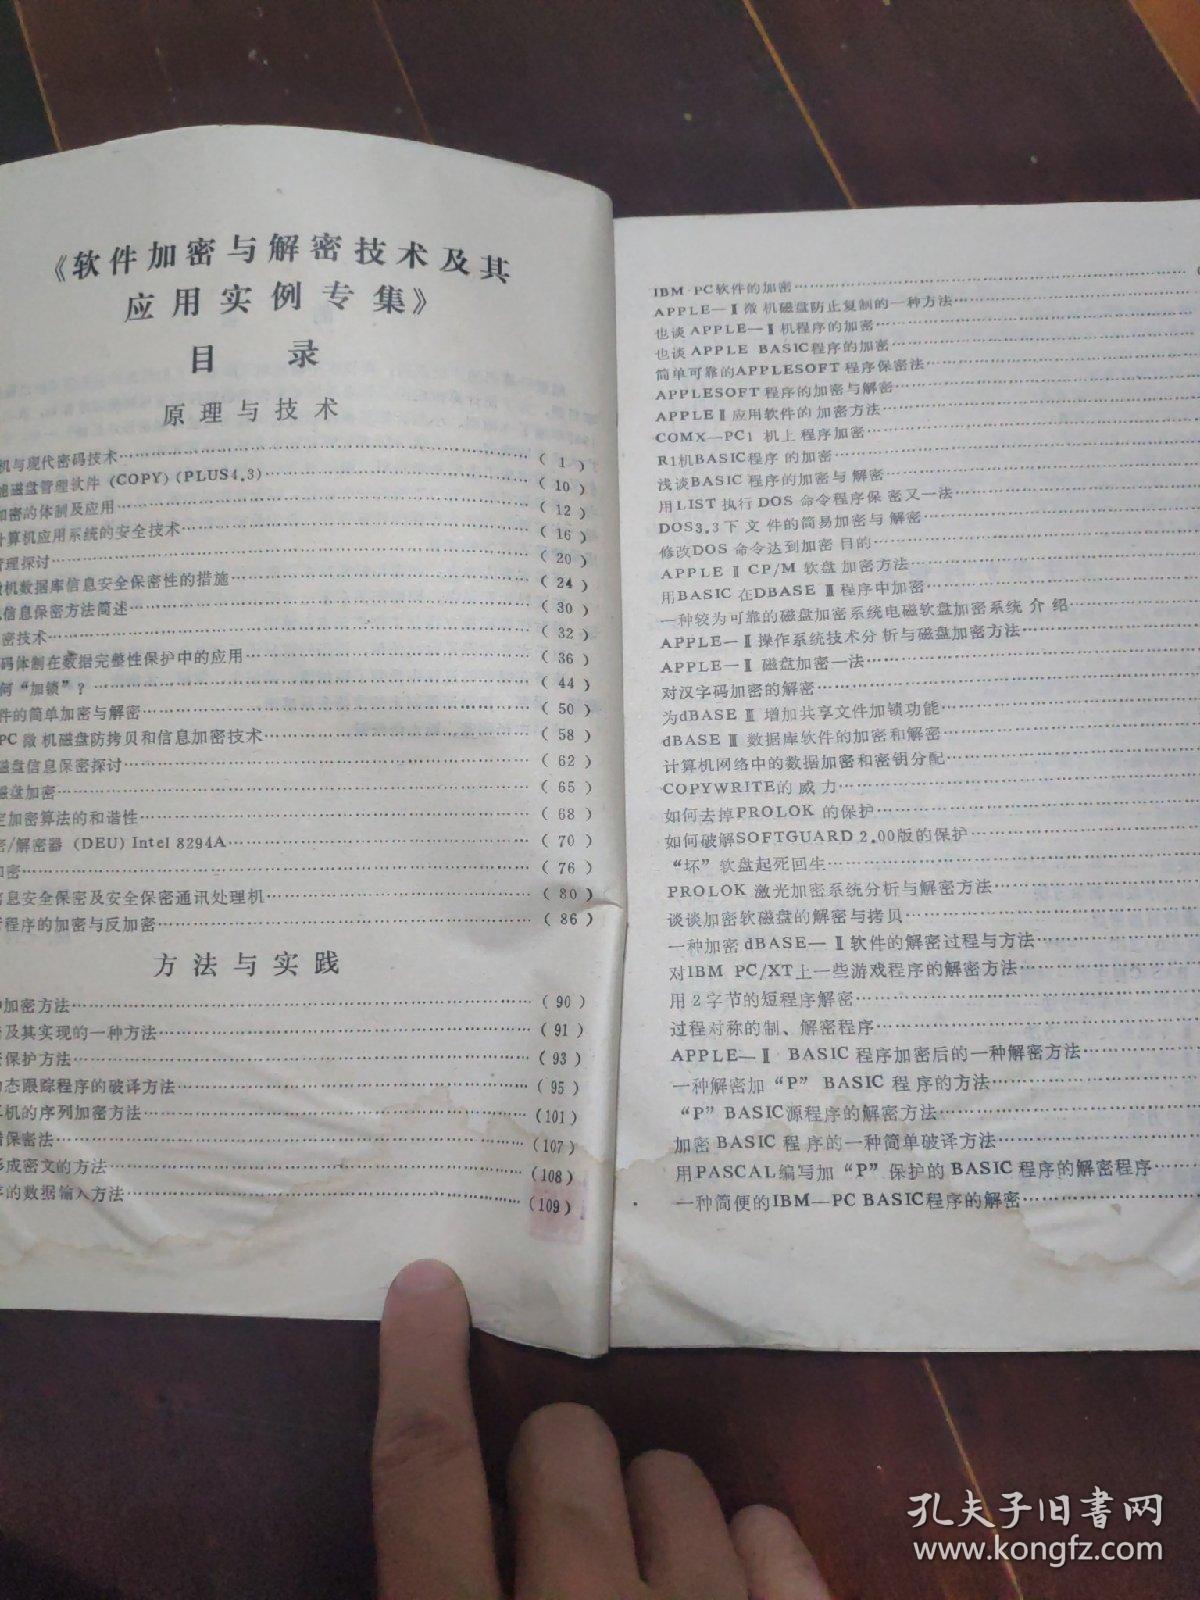 《软件加密与解密技术及其
应用实例专集》
目 录
原理与技术
机与现代密码技术……(1)
磁盘管理软件 (COPY) (PLUS4.3)……(10)
加密的体制及应用……(12)
计算机应用系统的安全技术……(16)
管理探讨……(20)
机数据库信息安全保密性的措施……(24)
信息保密方法简述……(30)
密技术……(32)
码体制在数据完整性保护中的应用……(36)
何“加锁”?……(44)
件的简单加密与解密……(50)
PC 微机磁盘防拷贝和信息加密技术……(58)
磁盘信息保密探讨……(62)
磁盘加密……(65)
定加密算法的和谐性……(68)
密/解密器 (DEU) Intel 8294A……(70)
加密……(76)
信息安全保密及安全保密通讯处理机……(80)
程序的加密与反加密……(86)
方法与实践
加密方法……(90)
及其实现的一种方法……(91)
保护方法……(93)
动态跟踪程序的破译方法……(95)
机的序列加密方法……(101)
保密法……(107)
形成密文的方法……(108)
的数据输入方法……(109)
IBM PC软件的加密……
APPLE—Ⅱ微机磁盘防止复制的一种方法……
也谈 APPLE—Ⅱ机程序的加密……
也谈 APPLE BASIC程序的加密……
简单可靠的APPLESOFT 程序保密法……
APPLESOFT 程序的加密与解密……
APPLEⅡ应用软件的加密方法……
COMX—PC1 机上程序加密……
R1机BASIC程序的加密……
浅谈BASIC 程序的加密与解密……
用LIST 执行 DOS 命令程序保密又一法……
DOS3.3下文件的简易加密与解密……
修改DOS 命令达到加密目的……
APPLE Ⅱ CP/M 软盘加密方法……
用BASIC 在DBASE Ⅱ程序中加密……
一种较为可靠的磁盘加密系统电磁软盘加密系统介绍……
APPLE—Ⅱ操作系统技术分析与磁盘加密方法……
APPLE—Ⅱ 磁盘加密一法……
对汉字码加密的解密……
为dBASE Ⅲ 增加共享文件加锁功能……
dBASE Ⅲ 数据库软件的加密和解密……
计算机网络中的数据加密和密钥分配……
COPYWRITE的威力……
如何去掉PROLOK 的保护……
如何破解SOFTGUARD 2.00版的保护……
“坏”软盘起死回生……
PROLOK 激光加密系统分析与解密方法……
谈谈加密软磁盘的解密与拷贝……
一种加密 dBASE—Ⅱ软件的解密过程与方法……
对IBM PC/XT上一些游戏程序的解密方法……
用2字节的短程序解密……
过程对称的制、解密程序……
APPLE—Ⅱ BASIC 程序加密后的一种解密方法……
一种解密加“P” BASIC 程序的方法……
“P” BASIC源程序的解密方法……
加密 BASIC 程序的一种简单破译方法……
用PASCAL编写加“P”保护的 BASIC 程序的解密程序……
一种简便的IBM—PC BASIC程序的解密……
孔夫子旧书网
www.kongfz.com